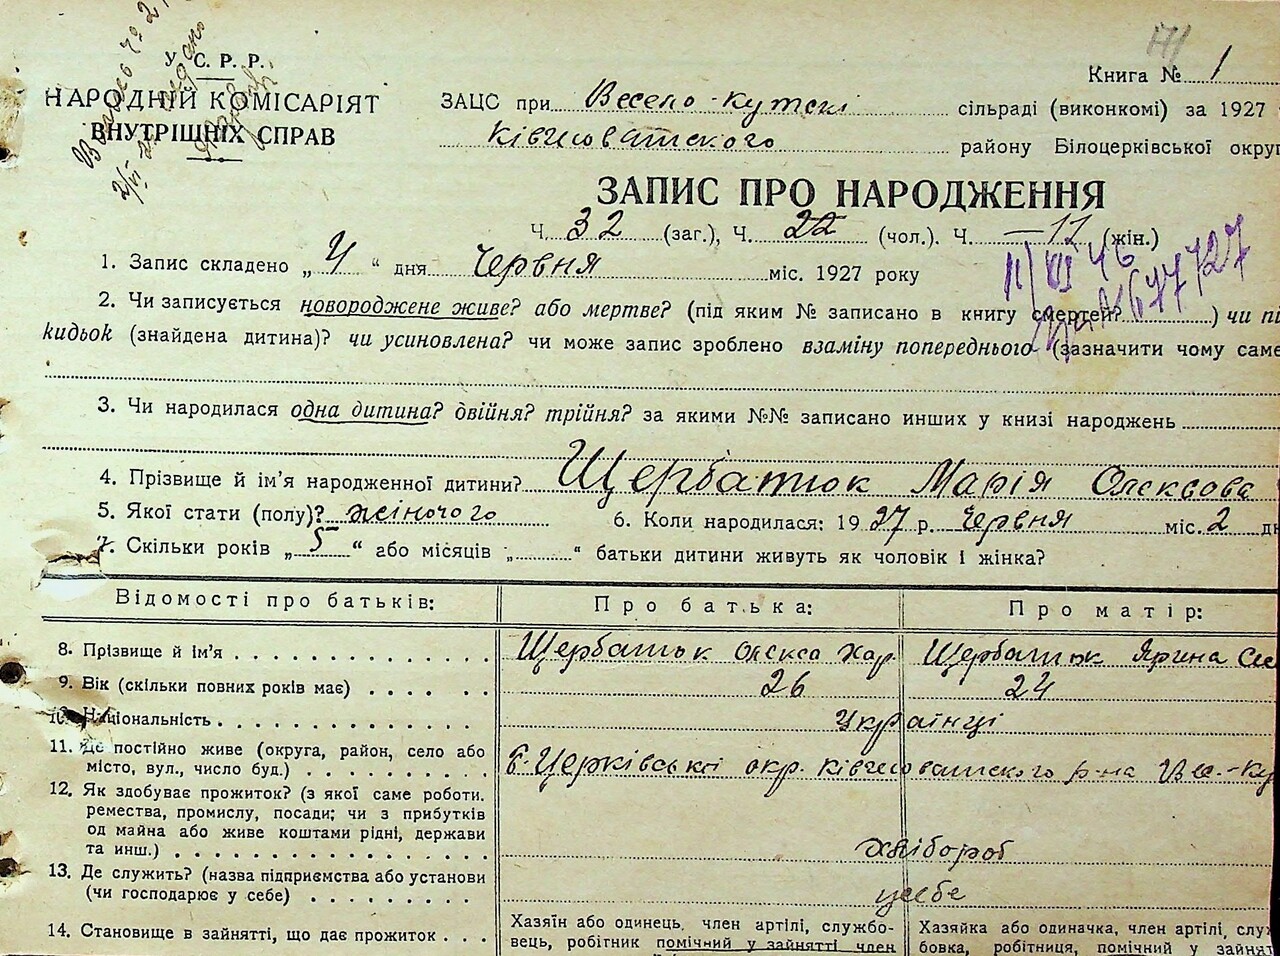 171
У. С. Р. Р.
НАРОДНІЙ КОМІСАРІЯТ
ВНУТРІШНІХ СПРАВ
Книга № 1
ЗАЦС при Весело-Кутскі сільраді (виконкомі) за 1927
Ківшоватского району Білоцерківської округ
ЗАПИС ПРО НАРОДЖЕННЯ
Ч. 32 (заг.), Ч. 22 (чол.). Ч. — 11 (жін.)
11/XII 46
677727
1. Запис складено „ 4 “ дня Червня міс. 1927 року
2. Чи записується новороджене живе? або мертве? (під яким № записано в книгу смертей? ) чи пі
кидьок (знайдена дитина)? чи усиновлена? чи може запис зроблено взаміну попереднього (зазначити чому саме
3. Чи народилася одна дитина? двійня? трійня? за якими №№ записано инших у книзі народжень
4. Прізвище й ім'я народженної дитини? Щербатюк Марія Олексова
5. Якої стати (полу)? жіночого 6. Коли народилася: 1927 р. Червня міс. 2 дн
7. Скільки років „ 5 “ або місяців „ “ батьки дитини живуть як чоловік і жінка?
Відомості про батьків: Про батька: Про матір:
8. Прізвище й ім'я Щербатюк Олекса Хар Щербатюк Ярина
9. Вік (скільки повних років має) 26 24
10. Національність Українці
11. Де постійно живе (округа, район, село або
місто, вул., число буд.) Б-Церківської окр. Ківшоватского р-на Вес.-Ку
12. Як здобуває прожиток? (з якої саме роботи.
ремества, промислу, посади; чи з прибутків
од майна або живе коштами рідні, держави
та инш.) хлібороб
13. Де служить? (назва підприємства або установи
(чи господарює у себе) у себе
14. Становище в зайнятті, що дає прожиток
Хазяїн або одинець, член артілі, службо-
вець, робітник помічний у зайнятті член
Хазяйка або одиначка, член артілі, слу
бовка, робітниця, помічний у зайнят